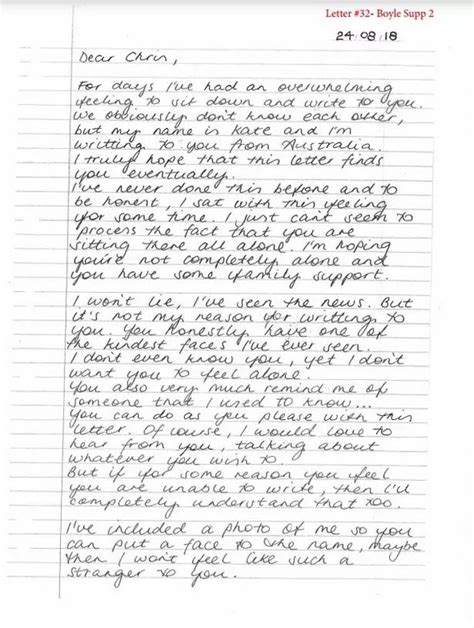 Letter #32- Boyle Supp 2
24/08/18
Dear Chris,
For days I've had an overwhelming
feeling to sit down and write to you.
We obviously don't know each other,
but my name is Kate and I'm
writting to you from Australia.
I truly hope that this letter finds
you eventually.
I've never done this before and to
be honest, I sat with this feeling
for some time. I just can't seem to
process the fact that you are
sitting there all alone. I'm hoping
you're not completely alone and
you have some family support.
I won't lie, I've seen the news. But
it's not my reason for writting to
you. You honestly have one of
the kindest faces I've ever seen.
I don't even know you, yet I don't
want you to feel alone.
You also very much remind me of
someone that I used to know...
You can do as you please with this
letter. Of course, I would love to
hear from you, talking about
whatever you wish to.
But if for some reason you feel
you are unable to write, then I'll
completely understand that too.
I've included a photo of me so you
can put a face to the name, maybe
then I won't feel like such a
stranger to you.